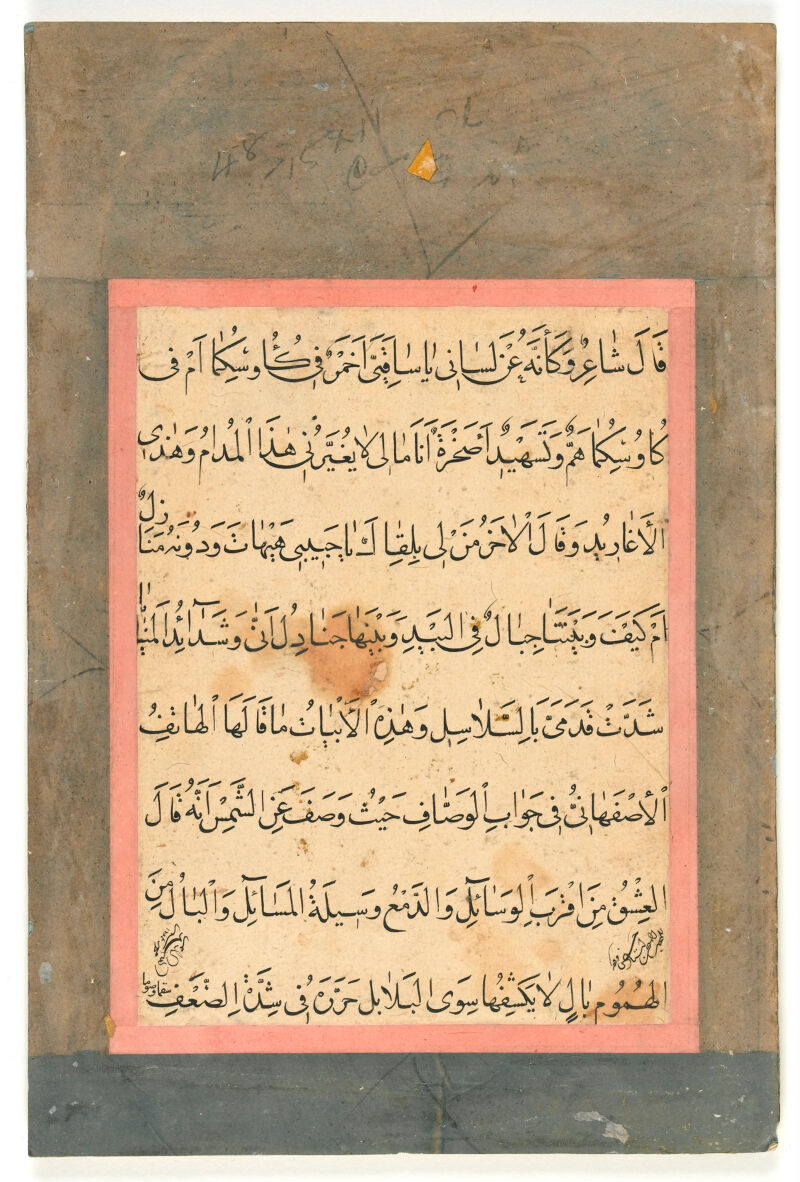 قَالَ شَاعِرٌ وَكَأَنَّهُ عَنْ لِسَانِي يَا سَاقِيَيَّ أَخَمْرٌ فِي كُؤُوسِكُمَا اَمْ فِي
كُاوُسِكُمَا هَمٌّ وَتَسْهِيدٌ أَصَخْرَةٌ اَنَا مَا لِي لَا يُغَيِّرُنِي هٰذَا الْمُدَامُ وَهٰذِي
الْأَغَارِيدُ وَقَالَ الْاٰخَرُ مَنْ لِي بِلِقَاكَ يَا حَبِيبِي هَيْهَاتَ وَدُونَهُ مَنَازِلُ
اَمْ كَيْفَ وَبَيْنَنَا جِبَالٌ فِي الْبَيْدِ وَبَيْنَهَا جَنَادِلُ اَنَّى وَشَدَآئِدُ الْمَنَايَا
شَدَّتْ قَدَمَيَّ بَالسَّلَاسِلِ وَهٰذِهِ الْأَبْيَاتُ مَا قَالَهَا الْهَاتِفُ
الْأَصْفَهَانِيُّ فِي جَوَابِ الْوَصَّافِ حَيْثُ وَصَفَ عَنِ الشَّمْسِ اَنَّهُ قَالَ
الْعِشْقُ مِنَ اَقْرَبِ الْوَسَآئِلِ وَالدَّمْعُ وَسِيلَةُ الْمَسَآئِلِ وَالْبَالُ مِنَ
الْهُمُومِ بَالٍ لَا يَكْشِفُهَا سِوَى الْبَلَابِلِ حَرَّرَهُ فِي شِدَّةِ الضَّعْفِ